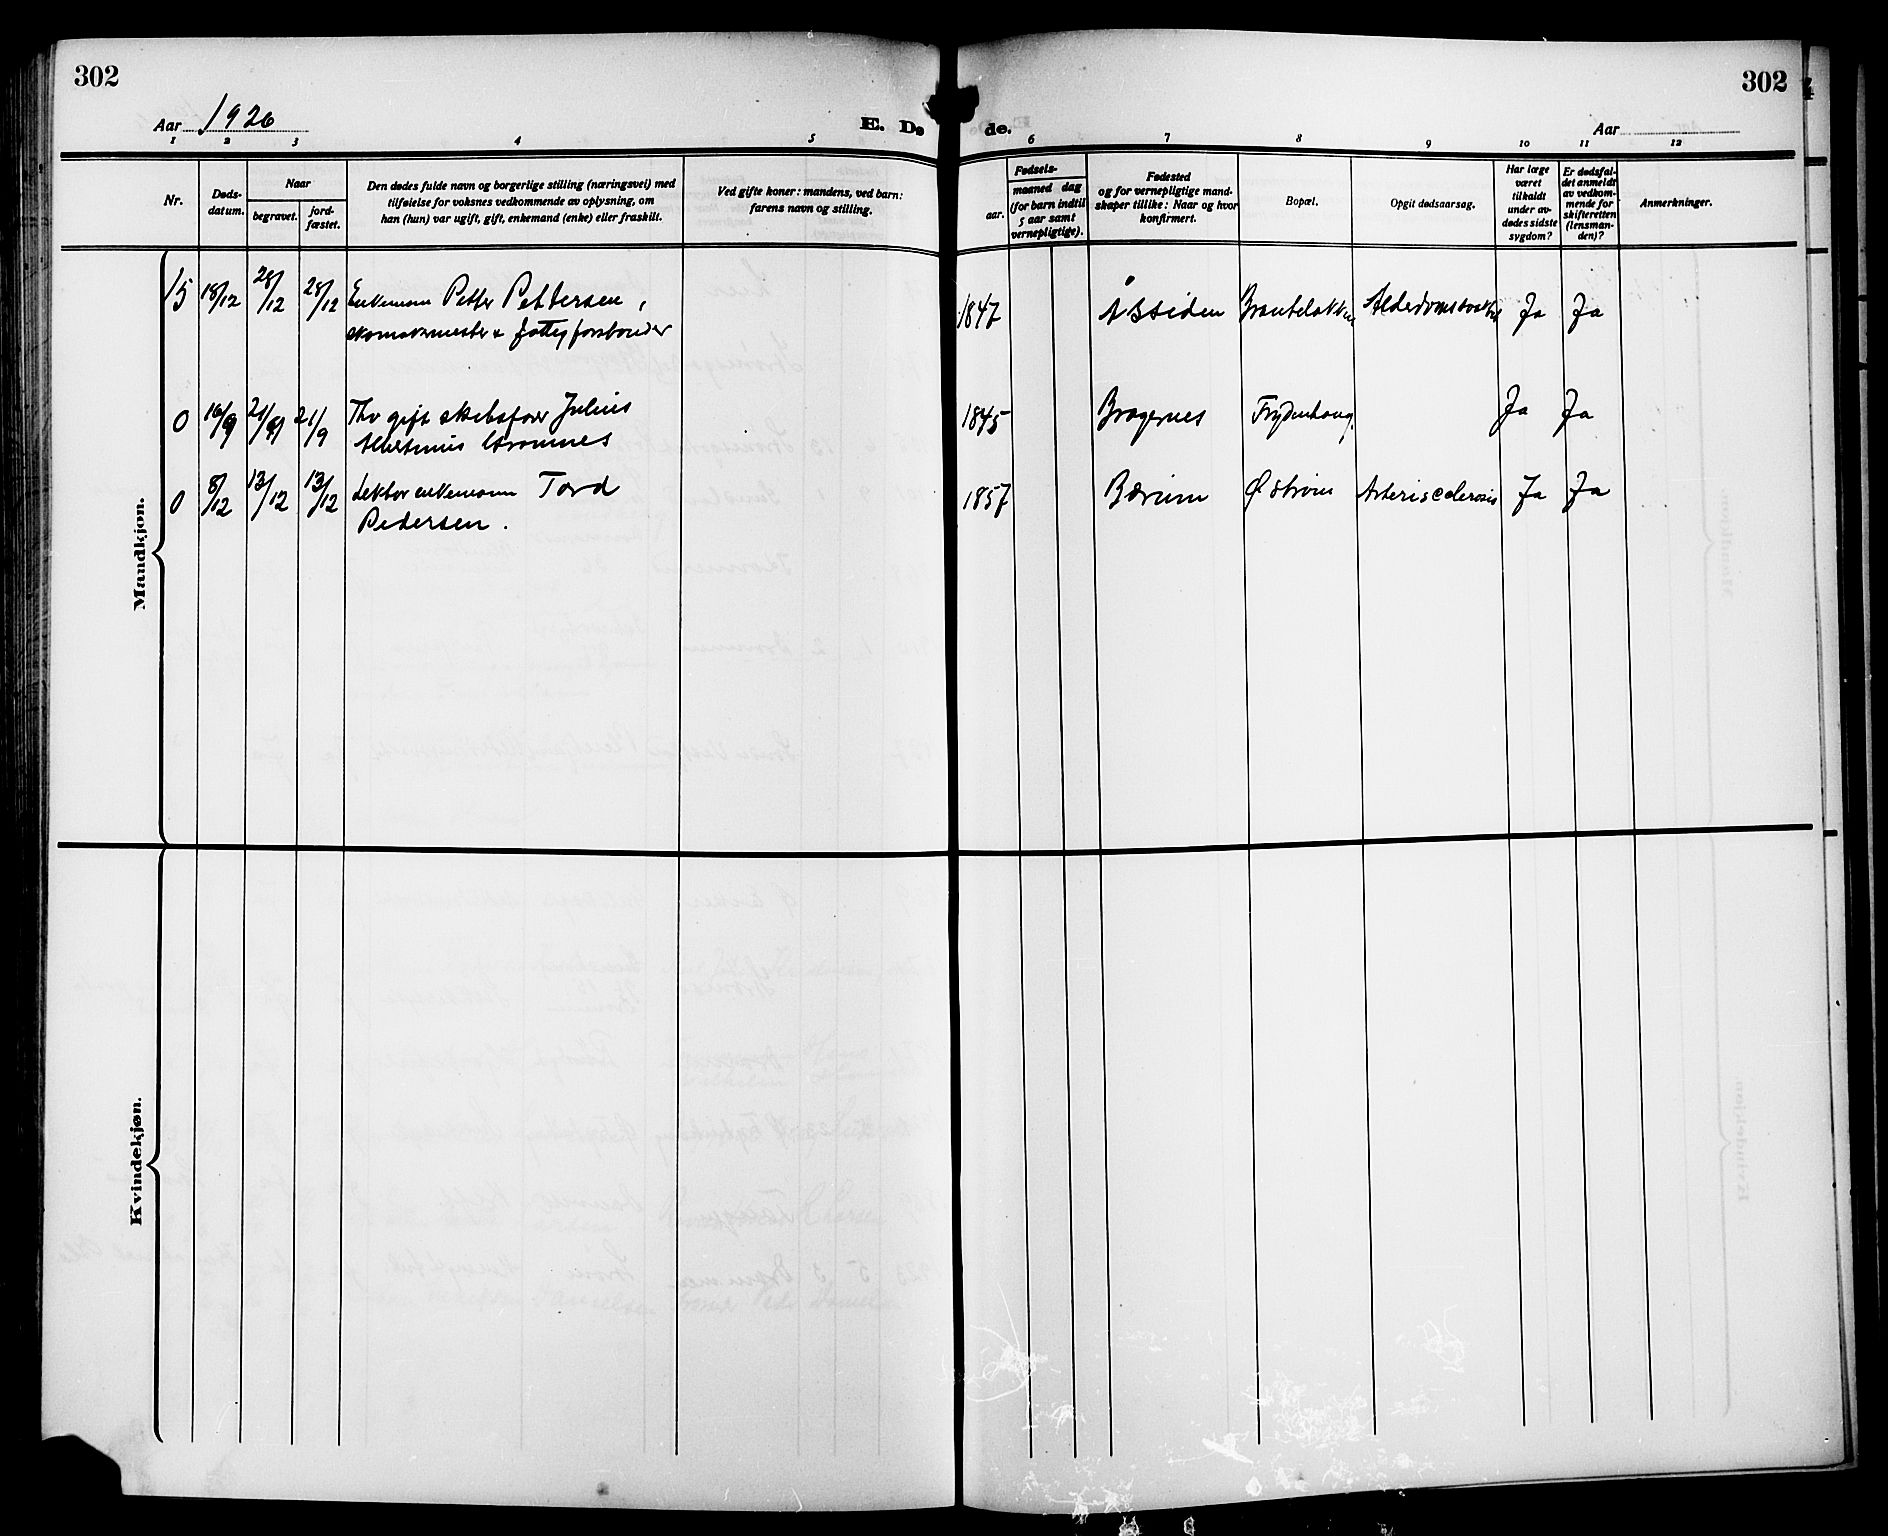 302
302
Aar 1926
E. Dø
de.
Aar
1 2 3 4 5 6 7 8 9 10 11 12
Nr.
Døds-
datum.
Naar
begravet.
jord-
fæstet.
Den dødes fulde navn og borgerlige stilling (næringsvei) med
tilføielse for voksnes vedkommende av oplysning, om
han (hun) var ugift, gift, enkemand (enke) eller fraskilt.
Ved gifte koner: mandens, ved barn:
farens navn og stilling.
Fødsels-
aar.
maaned dag
(for barn indtil
5 aar samt
vernepligtige).
Fødested
og for vernepligtige mand-
skaper tillike: Naar og hvor
konfirmert.
Bopæl.
Opgit dødsaarsag.
Har læge
været
tilkaldt
under av-
dødes sidste
sygdom?
Er dødsfal-
det anmeldt
av vedkom-
mende for
skifteretten
(lensman-
den)?
Anmerkninger.
Mandkjøn.
15 18/12 28/12 28/12 Enkemann Petter Pettersen, 1847 Åssiden Alderdomssvakhet Ja Ja
skomakermester & fattigforstander
0 16/9 21/9 21/9 gift Julius 1845 Bragernes Frydenhaug. Ja Ja
0 8/12 13/12 13/12 Lektor enkemann Tord 1857 Bærum Ø Strøm Arterisclerosis Ja Ja
Pedersen.
Kvindekjøn.